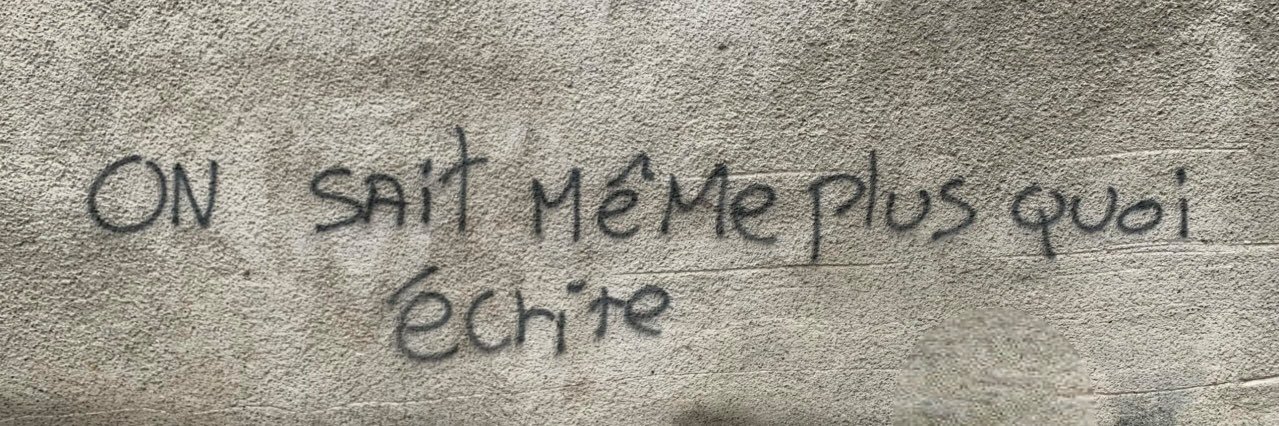 ON SAIT MêMe plus quoi
écrite